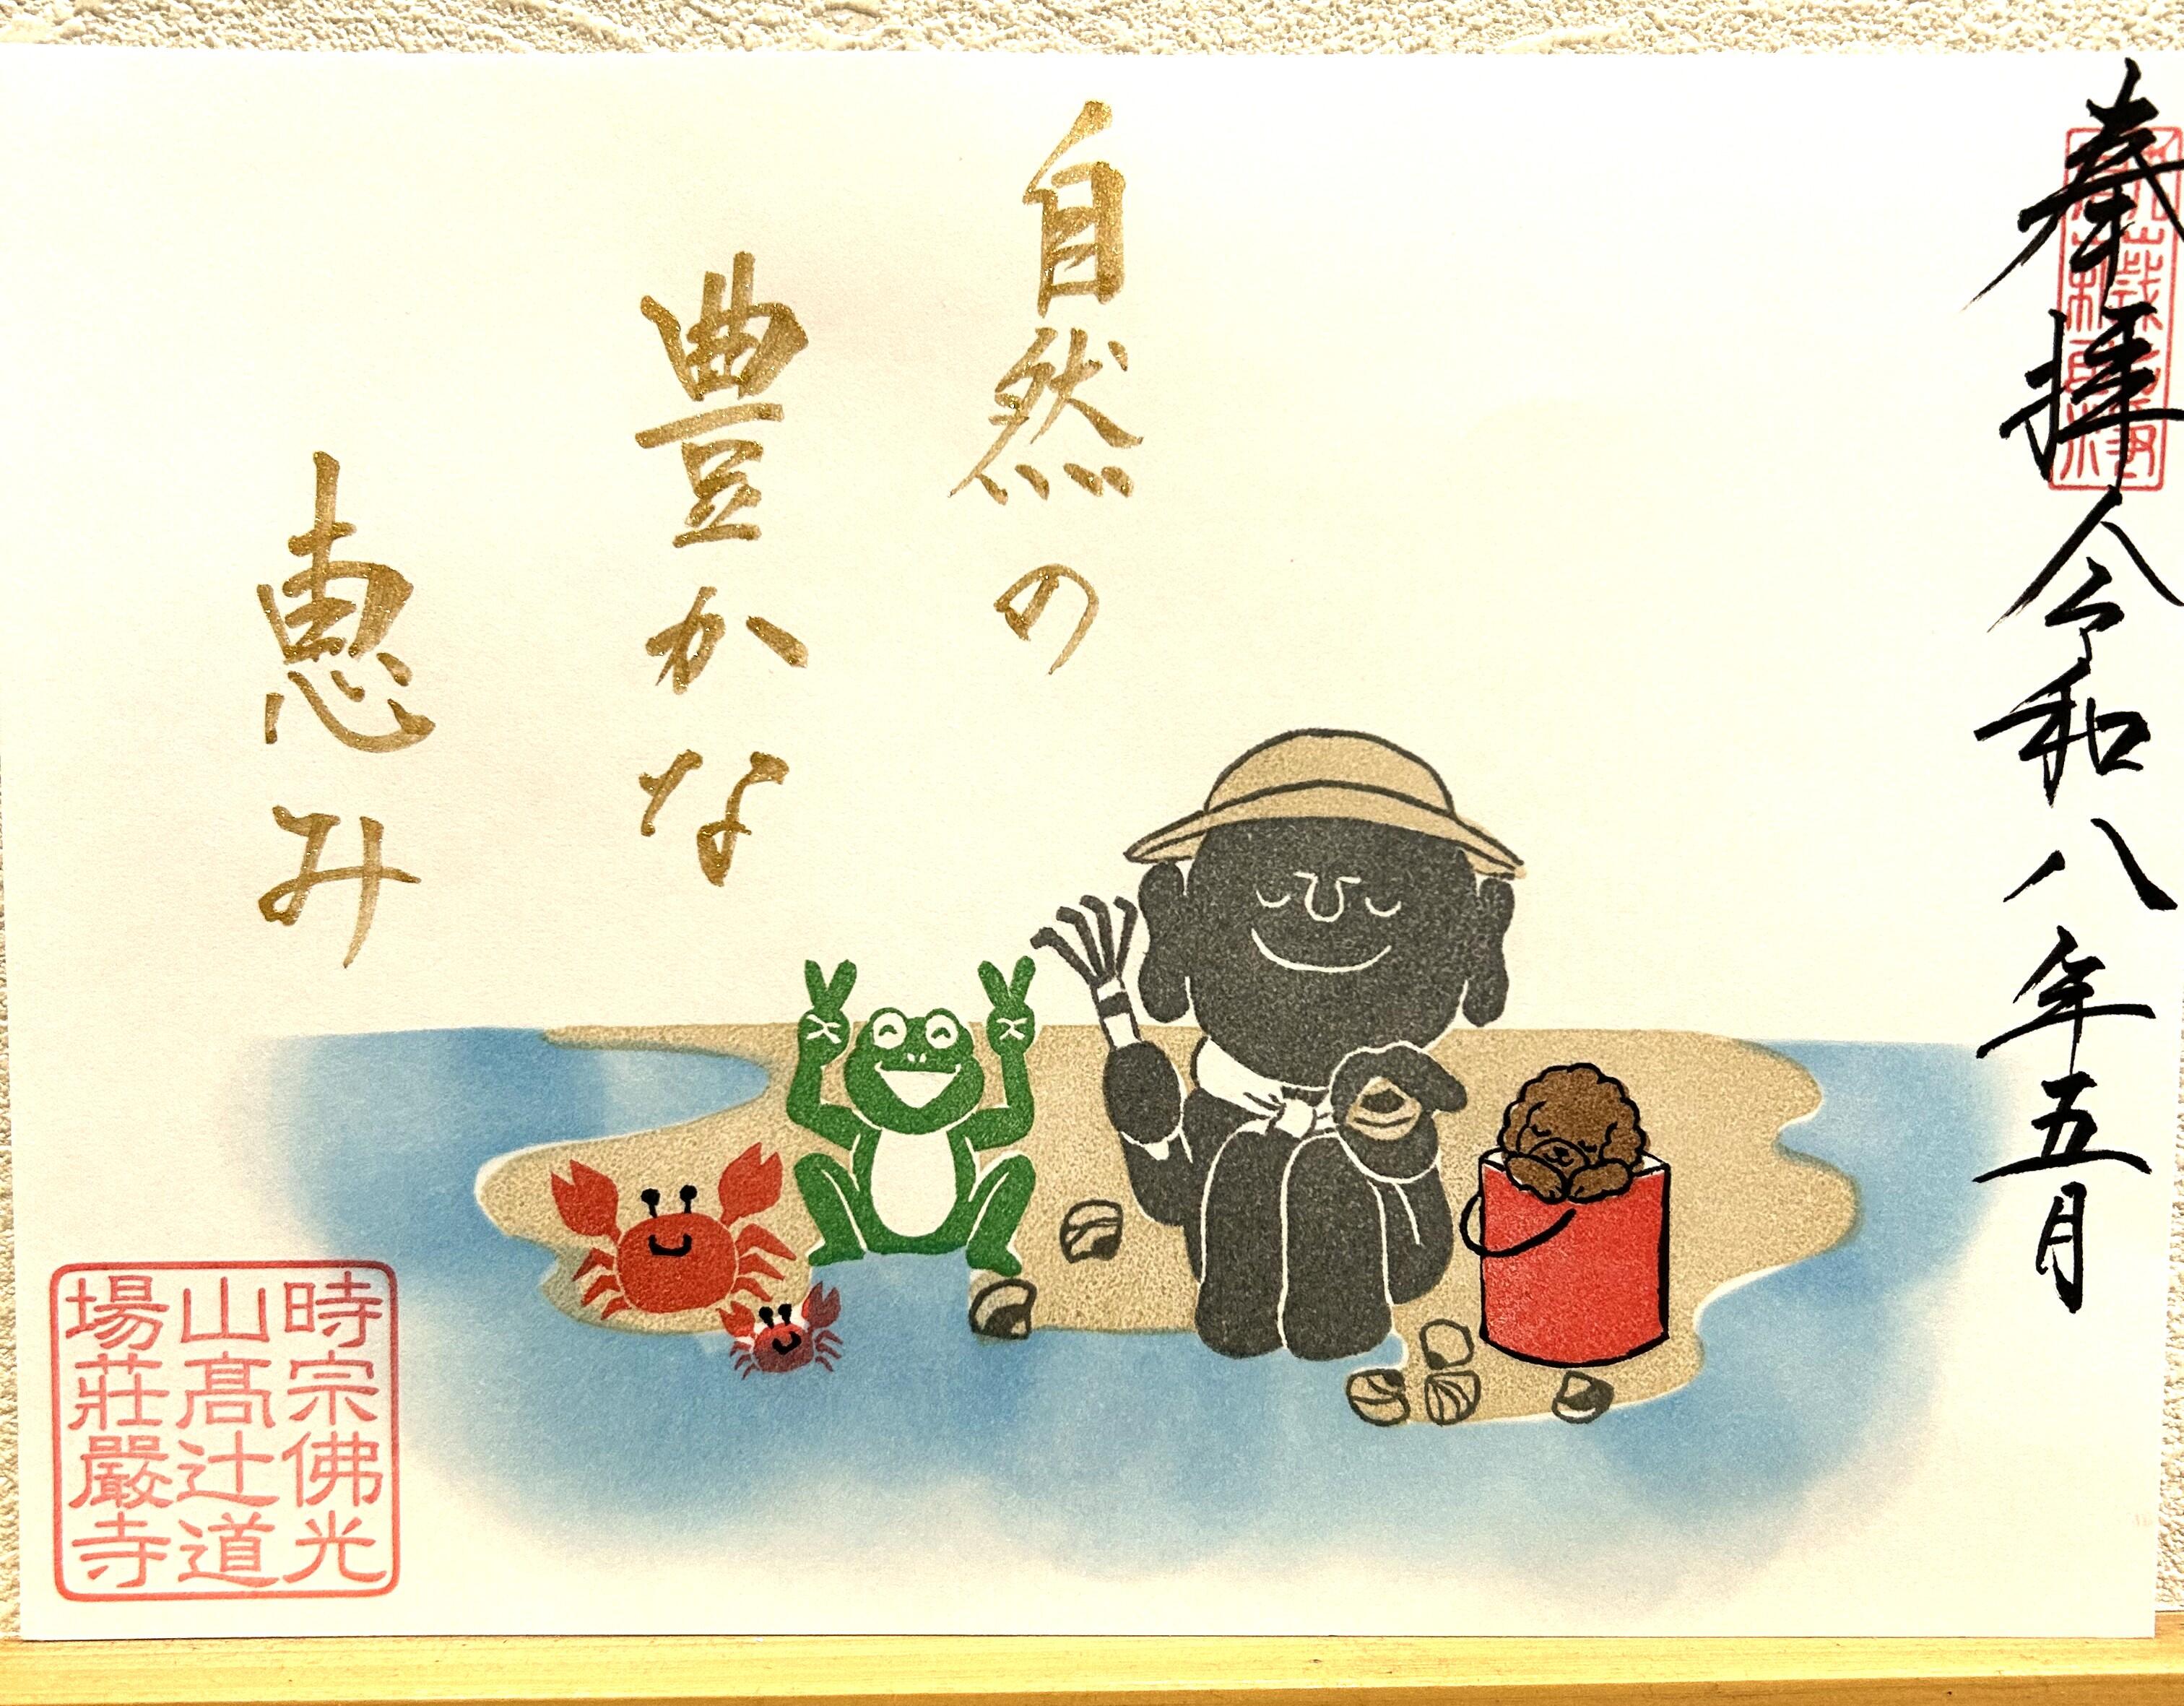 奉拝 令和八年五月
自然の
豊かな
恵み
時宗佛光
山高辻道
場荘嚴寺